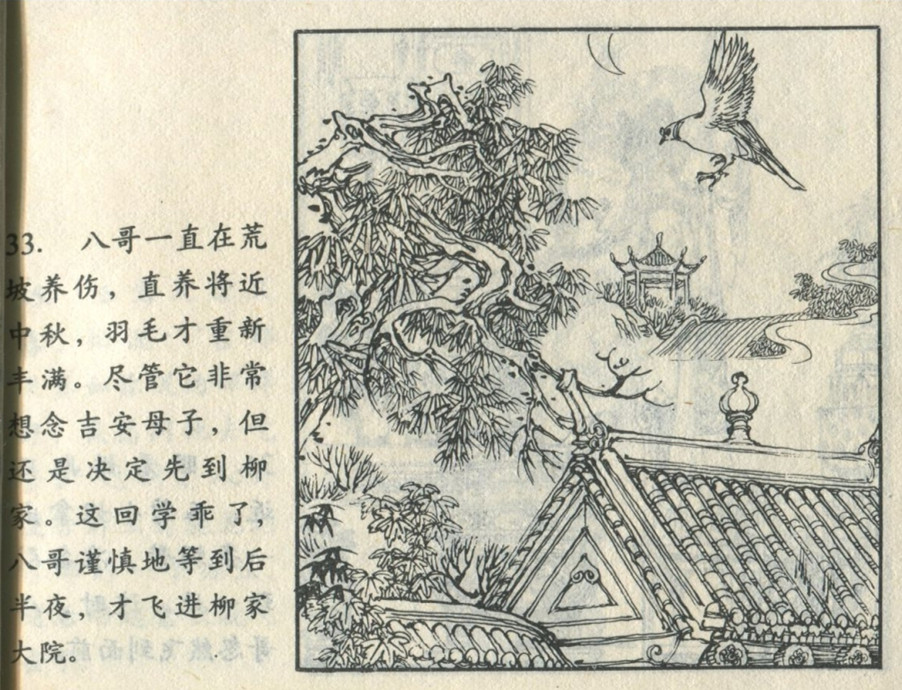 33. 八哥一直在荒
坡养伤，直养将近
中秋，羽毛才重新
丰满。尽管它非常
想念吉安母子，但
还是决定先到柳
家。这回学乖了，
八哥谨慎地等到后
半夜，才飞进柳家
大院。